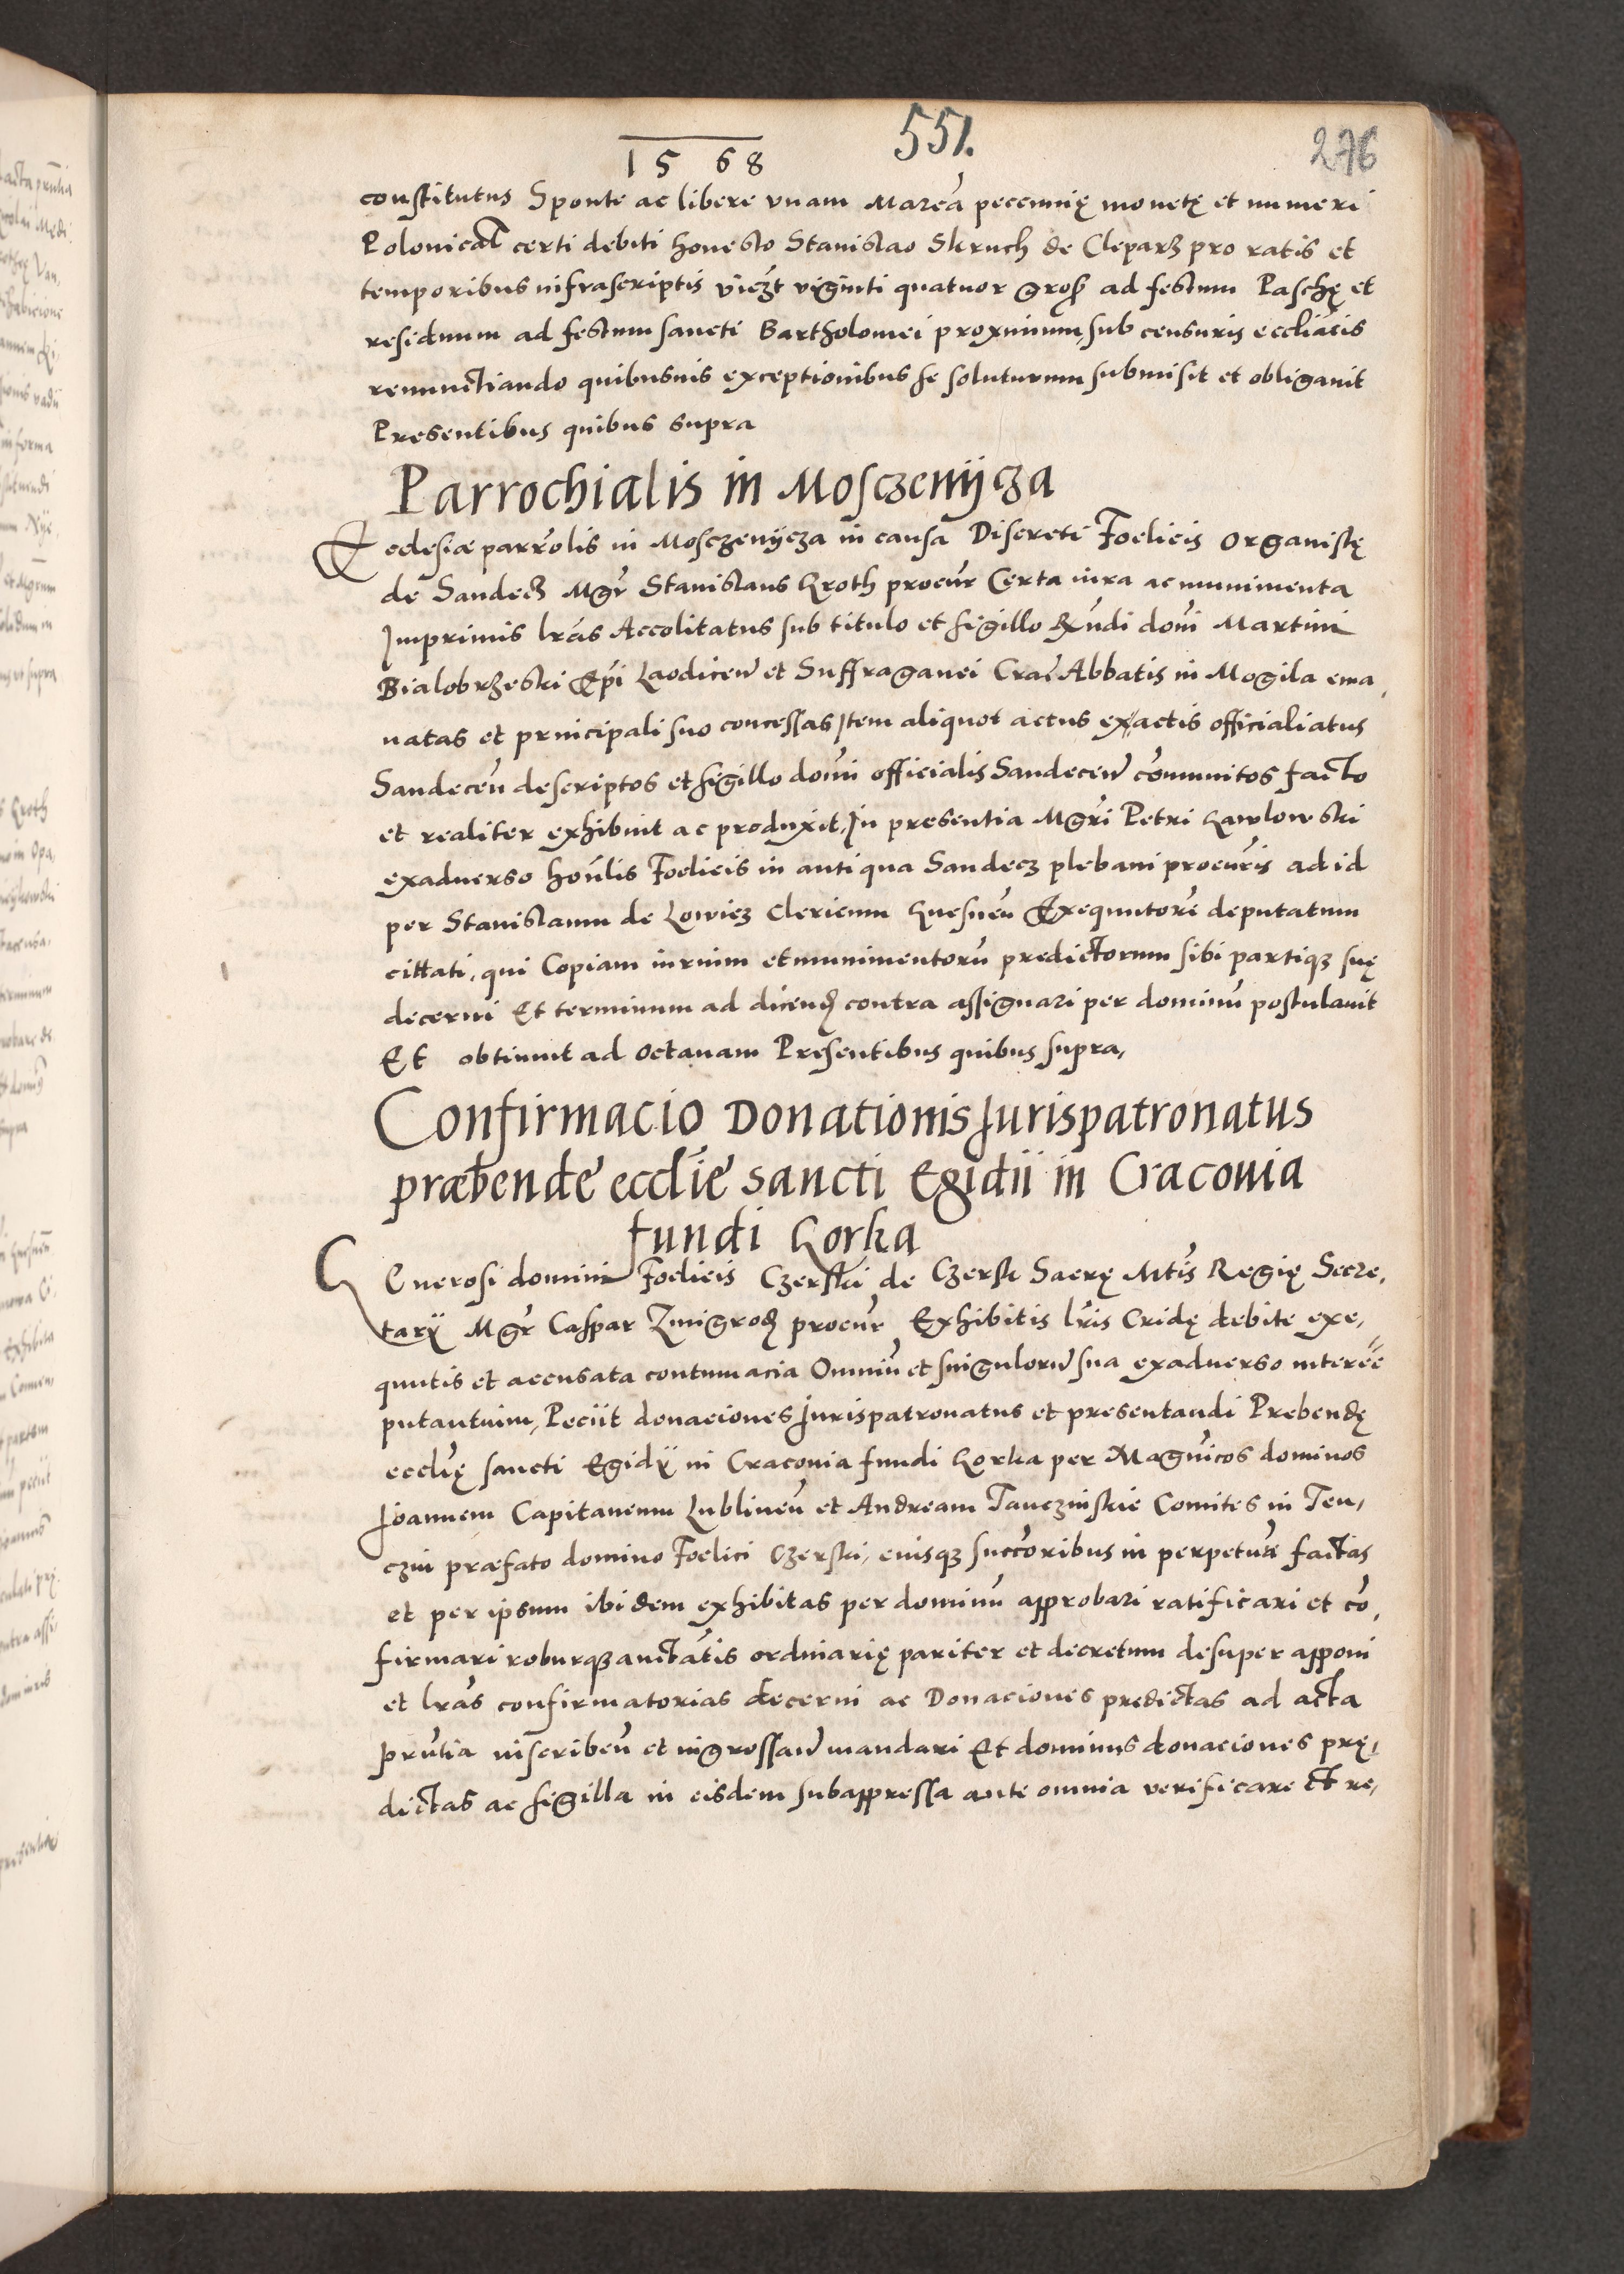 1568
551.
276
constitutus Sponte ac libere vnam Marcā pecunnię monetę et numeri
Polonical certi debiti honesto Stanislao Skruch de Cleparz pro ratis et
temporibus infrascriptis vīczt viginti quatuor gros ad festum Paschę et
residuum ad festum sancti Bartholomei proximum, sub censuris eccliacis
renunctiando quibusuis exceptionibus se soluturum submisit et obligauit
Presentibus quibus supra
Parrochialis in Mosczenycza
Ecclesiæ parrolis in Mosczenycza in causa Discreti Foelicis Organistę
de Sandecz Mgr Stanislaus Kroth procur Certa iura ac munimenta
Imprimis lras Accolitatus sub titulo et sigillo Rndi domi Martini
Bialobrzeski Epi Laodicen et Suffraganei Crac Abbatis in Mogila ema,
natas et principali suo concessas Item aliquot actus ex actis officialiatus
Sandecen descriptos et sigillo domi officialis Sandecen comunitos facto
et realiter exhibuit ac produxit, In presentia Mgri Petri Kawlowski
exaduerso honlis Foelicis in antiqua Sandecz plebani procuris ad id
per Stanislaum de Lowicz Clericum Gnesnen Exequutore deputatum
cittati, qui Copiam iurium et munimentorū predictorum sibi partiqz suę
decerni Et terminum ad dicend contra assignari per dominū postulauit
Et obtinuit ad octauam Presentibus quibus supra,
Confirmacio Donationis Iurispatronatus
præbende ecclie sancti Egidii in Cracouia
fundi Gorka
Generosi domini Foelicis Czerski de Czersk Sacrę Mtis Regię Secre,
tarÿ Mgr Caspar Zmigrod procur Exhibitis lris Cridę debite exe,
quutis et accusata contumacia Omniū et singulorum sua exaduerso interee
putantium, Peciit donaciones Iurispatronatus et presentandi Prebendę
ecclię sancti Egidÿ in Cracouia fundi Gorka per Magnicos dominos
Joannem Capitaneum Lublinen et Andream Tanczinskie Comites in Ten,
czin præfato domino Foelici Czerski, eiusqz succoribus in perpetuū factas
et per ipsum ibidem exhibitas per dominū approbari ratificari et cō,
firmari roburqz auctatis ordinarię pariter et decretum desuper apponi
et lras confirmatorias decerni ac Donaciones predictas ad acta
prntia inscriben et ingrossan mandari Et dominus donaciones prę,
dictas ac sigilla in eisdem subappressa ante omnia verificare et re,